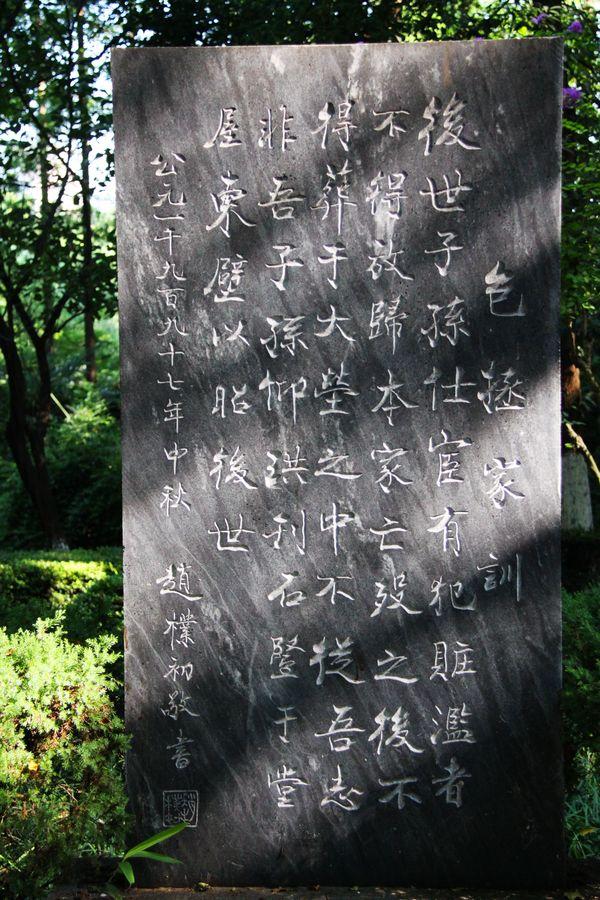 包拯家訓
後世子孫仕宦有犯賍濫者
不得放歸本家亡歿之後不
得葬于大塋之中不從吾志
非吾子孫仰洪刊石豎于堂
屋東壁以昭後世
公元一千九百九十七年中秋 趙樸初敬書